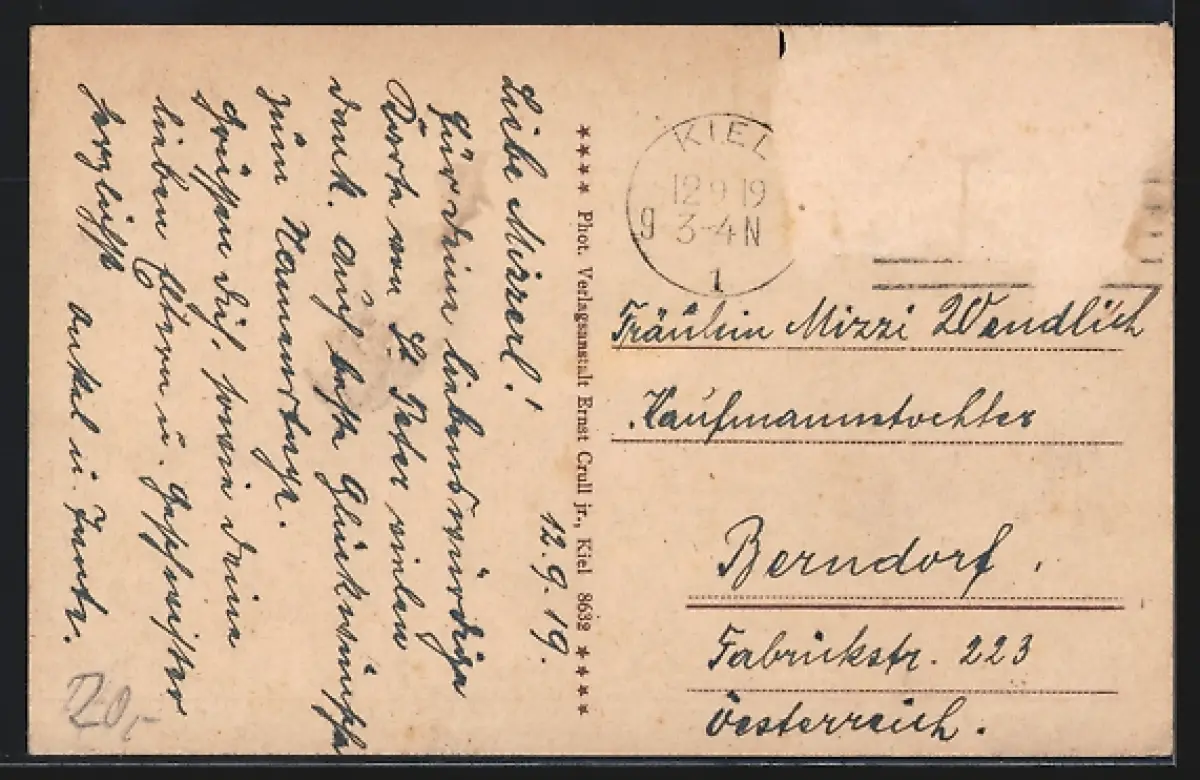 12.9.19.
Liebe Mizzerl!
Für Deine liebenswürdige
Karte von St. Peter vielen
Dank. Auch beste Glückwünsche
zum Namenstage.
Grüssen Dich, sowie Deine
lieben Eltern u. Geschwister
herzlichst Onkel u. Tante.
20,-
★★★★ Phot. Verlagsanstalt Ernst Crull jr., Kiel 8632 ★★★★
KIEL
12 9 19
9 3-4 N
1
Fräulein Mizzi Wendlich
Kaufmannstochter
Berndorf.
Fabrikstr. 223
Oesterreich.